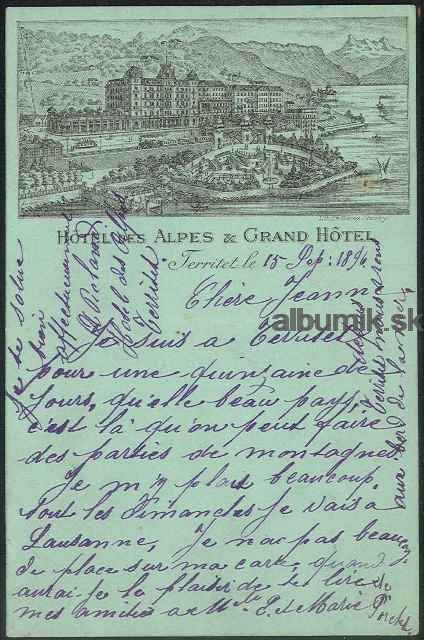 HÔTEL DES ALPES & GRAND HÔTEL
Territet le 15 Sep: 1896
Chère Jeanne
albumik.sk
Je suis à Territet
pour une quinzaine de
jours, qu'elle beau pays,
c'est là qu'on peut faire
des parties de montagnes
Je m'y plais beaucoup,
tout les Dimanches je vais à
Lausanne, Je n'ai pas beaucoup
de place sur ma carte, quand
aurai-je le plaisir de te lire
mes amitiés a Mlle et Marie
Je te salue
bien
affectueusement
Hotel des Alpes
Territet
aux bord du